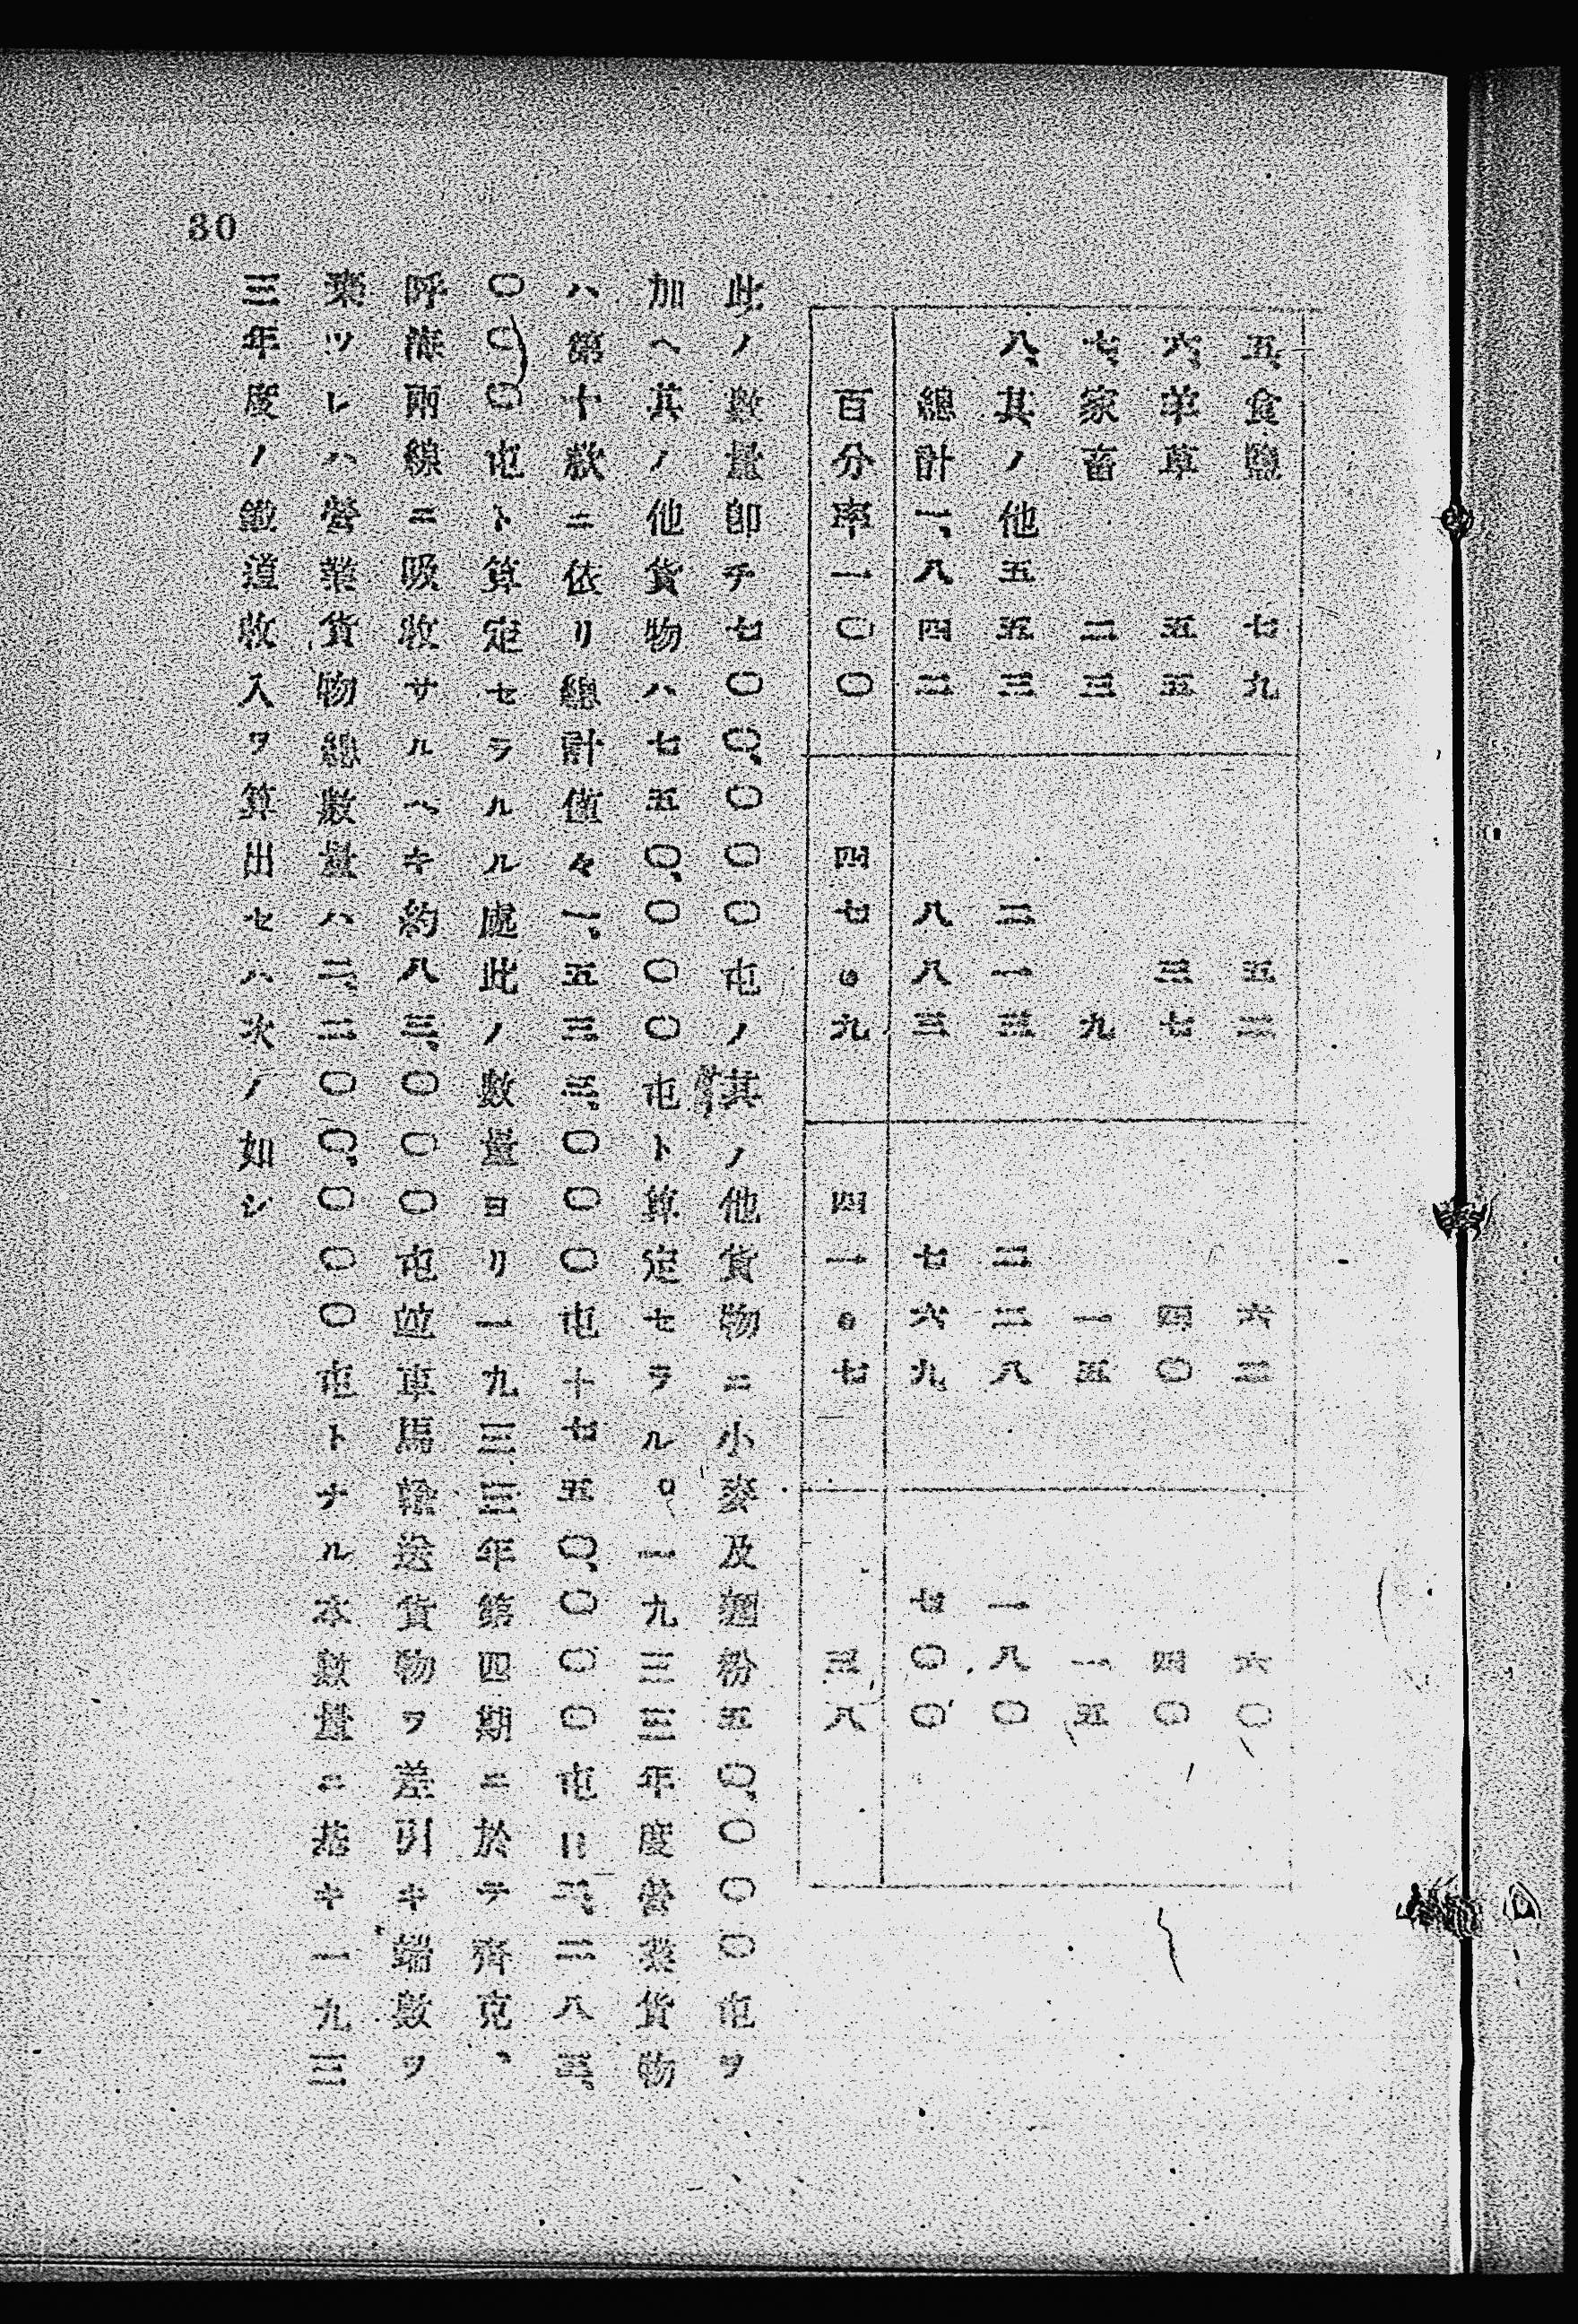 五、食鹽 七九 五二 六二 六〇
六、羊草 五五 三七 四〇 四〇
七、家畜 二三 九 一五 一五
八、其ノ他 五五三 二一三 二二八 一八〇
總計 一、八四二 八八三 七六九 七〇〇
百分率 一〇〇 四七.九 四一.七 三八
此ノ數量卽チ七〇〇、〇〇〇屯ノ其ノ他貨物ニ小麥及麵粉五〇、〇〇〇屯ヲ
加ヘ其ノ他貨物ハ七五〇、〇〇〇屯ト算定セラル。一九三三年度營業貨物
ハ第十款ニ依リ總計僅々一、五三三、〇〇〇屯十七五〇、〇〇〇屯=二、二八三、
〇〇〇屯ト算定セラルル處此ノ數量ヨリ一九三三年第四期ニ於テ齊克、
呼海兩線ニ吸收サルヘキ約八三、〇〇〇屯竝車馬輸送貨物ヲ差引キ端數ヲ
棄ツレハ營業貨物總數量ハ二、二〇〇、〇〇〇屯トナル本數量ニ基キ一九三
三年度ノ鐵道收入ヲ算出セハ次ノ如シ
30